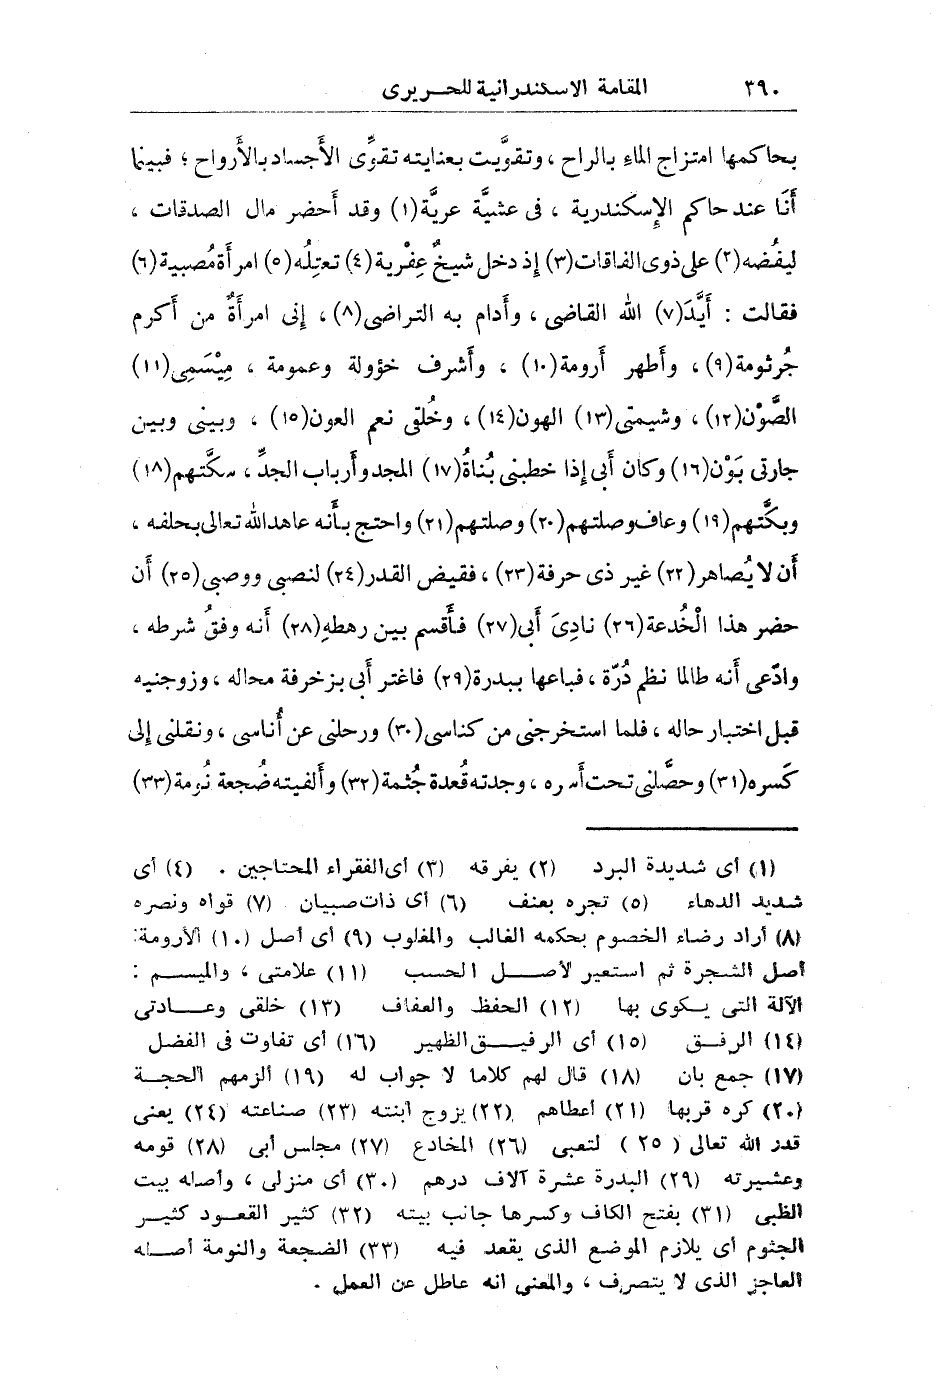 ٣٩٠ المقامة الاسكندرانية للحريرى
بحاكمها امتزاج الماء بالراح ، وتقوَّيت بعنايته تقوِّى الأَجساد بالأَرواح ؛ فبينما
أَنَا عند حاكم الإِسكندرية ، فى عشيَّة عريَّة(١) وقد أَحضر مال الصدقات ،
ليفُضه(٢) على ذوى الفاقات(٣) إذ دخل شيخٌ عِفْرية(٤) تعتِلُه(٥) امرأَة مُصبية(٦)
فقالت : أَيَّدَ(٧) الله القاضى ، وأَدام به التراضى(٨) ، إنى امرأَةٌ من أَكرم
جُرثومة(٩) ، وأَطهر أَرومة(١٠) ، وأَشرف خؤولة وعمومة ، مِيْسَمِى(١١)
الصَّوْن(١٢) ، وشيمتى(١٣) الهون(١٤) ، وخُلقى نعم العون(١٥) ، وبينى وبين
جارتى بَوْن(١٦) وكان أَبى إذا خطبنى بُناةُ(١٧) المجد وأَرباب الجدِّ ، سكَّتهم(١٨)
وبكَّتهم(١٩) وعاف وصلتهم(٢٠) وصلتهم(٢١) واحتج بأَنه عاهد الله تعالى بحلفه ،
أَن لا يُصاهر(٢٢) غير ذى حرفة(٢٣) ، فقيض القدر(٢٤) لنصبى ووصبى(٢٥) أَن
حضر هذا الْخُدعة(٢٦) نادِىَ أَبى(٢٧) فأَقسم بين رهطهِ(٢٨) أَنه وفقُ شرطه ،
وادّعى أَنه طالما نظم دُرّة ، فباعها ببدرة(٢٩) فاغتر أَبى بزخرفة محاله ، وزوجنيه
قبل اختبار حاله ، فلما استخرجنى من كناسى(٣٠) ورحلنى عن أُناسى ، ونقلنى إلى
كَسره(٣١) وحصَّلنى تحت أسره ، وجدته قُعدة جُثمة(٣٢) وأَلفيته ضُجعة نُومة(٣٣)
(١) أى شديدة البرد (٢) يفرقه (٣) أى الفقراء المحتاجين . (٤) أى
شديد الدهاء (٥) تجره بعنف (٦) أى ذات صبيان (٧) قواه ونصره
(٨) أراد رضاء الخصوم بحكمه الغالب والمغلوب (٩) أى أصل (١٠) الأرومة:
أصل الشجرة ثم استعير لأصل الحسب (١١) علامتى ، والميسم :
الآلة التى يكوى بها (١٢) الحفظ والعفاف (١٣) خلقى وعادتى
(١٤) الرفق (١٥) أى الرفيق الظهير (١٦) أى تفاوت فى الفضل
(١٧) جمع بان (١٨) قال لهم كلاما لا جواب له (١٩) ألزمهم الحجة
(٢٠) كره قربها (٢١) أعطاهم (٢٢) يزوج ابنته (٢٣) صناعته (٢٤) يعنى
قدر الله تعالى (٢٥) لتعبى (٢٦) المخادع (٢٧) مجلس أبى (٢٨) قومه
وعشيرته (٢٩) البدرة عشرة آلاف درهم (٣٠) أى منزلى ، وأصله بيت
الظبى (٣١) بفتح الكاف وكسرها جانب بيته (٣٢) كثير القعود كثير
الجثوم أى يلازم الموضع الذى يقعد فيه (٣٣) الضجعة والنومة أصله
العاجز الذى لا يتصرف ، والمعنى انه عاطل عن العمل .